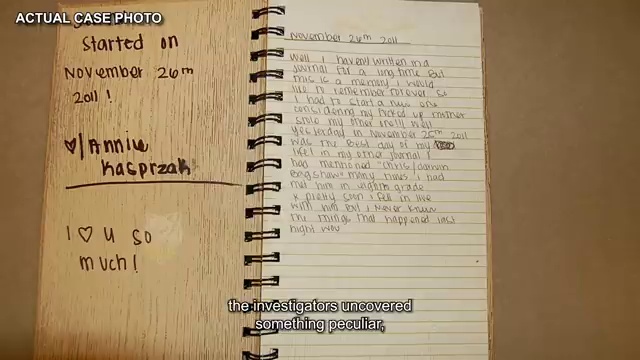 ACTUAL CASE PHOTO
Started on
November 26th
2011!
♡/Annie
Kasprzak
I ♡ u so
much!
November 26th 2011
Well I havent written in a
journal for a long time but
this is a memory I would
like to remember forever so
I had to start a new one
considering my fucked up mother
stole my other one!!! Well
yesterday in November 25th 2011
was the best day of my
like! in my other journal I
had mentioned "Chris/
Bagshaw" many times I had
met him in eighth grade
& pretty soon I fell in love
with him but I never knew
the things that happened last
night wou
the investigators uncovered
something peculiar,